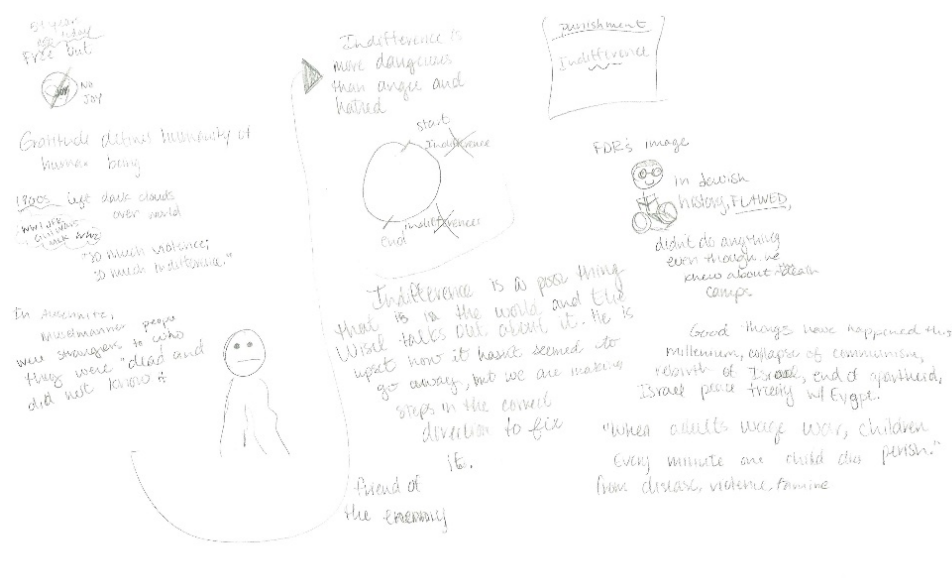 51 year
today
Free but
Joy
No
Joy
Gratitude defines humanity of
human being
1900s left dark clouds
over world
WWI JFK
civil wars
MLK
"so much violence;
so much indifference."
In Auschwitz,
Muselmanner people
were strangers to who
they were "dead and
did not know it
Indifference is
more dangerous
than anger and
hatred
start
Indifference
indifferences
end
Indifference is a pose thing
that is in the world and the
Wisel talks out about it. He is
upset how it hasnt seemed to
go away, but we are making
steps in the correct
direction to fix
it.
friend of
the enemy
punishment
Indifference
FDR's image
in Jewish
history, FLAWED,
didn't do anything
even though he
knew about death
camps.
Good things have happened this
millennium, collapse of communism,
rebirth of Israel, end of apartheid,
Israel peace treaty w/ Eygpt.
"When adults wage war, children
perish."
Every minute one child dies
from disease, violence, famine